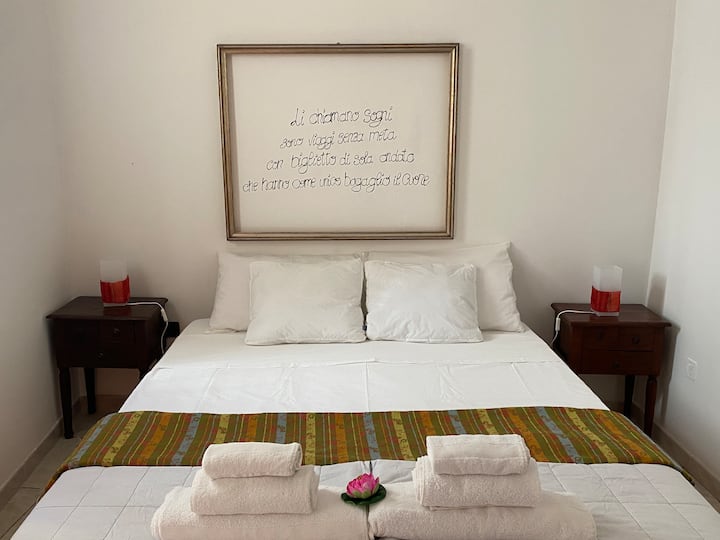 Li chiamano sogni
sono viaggi senza meta
con biglietto di sola andata
che hanno come unico bagaglio il cuore